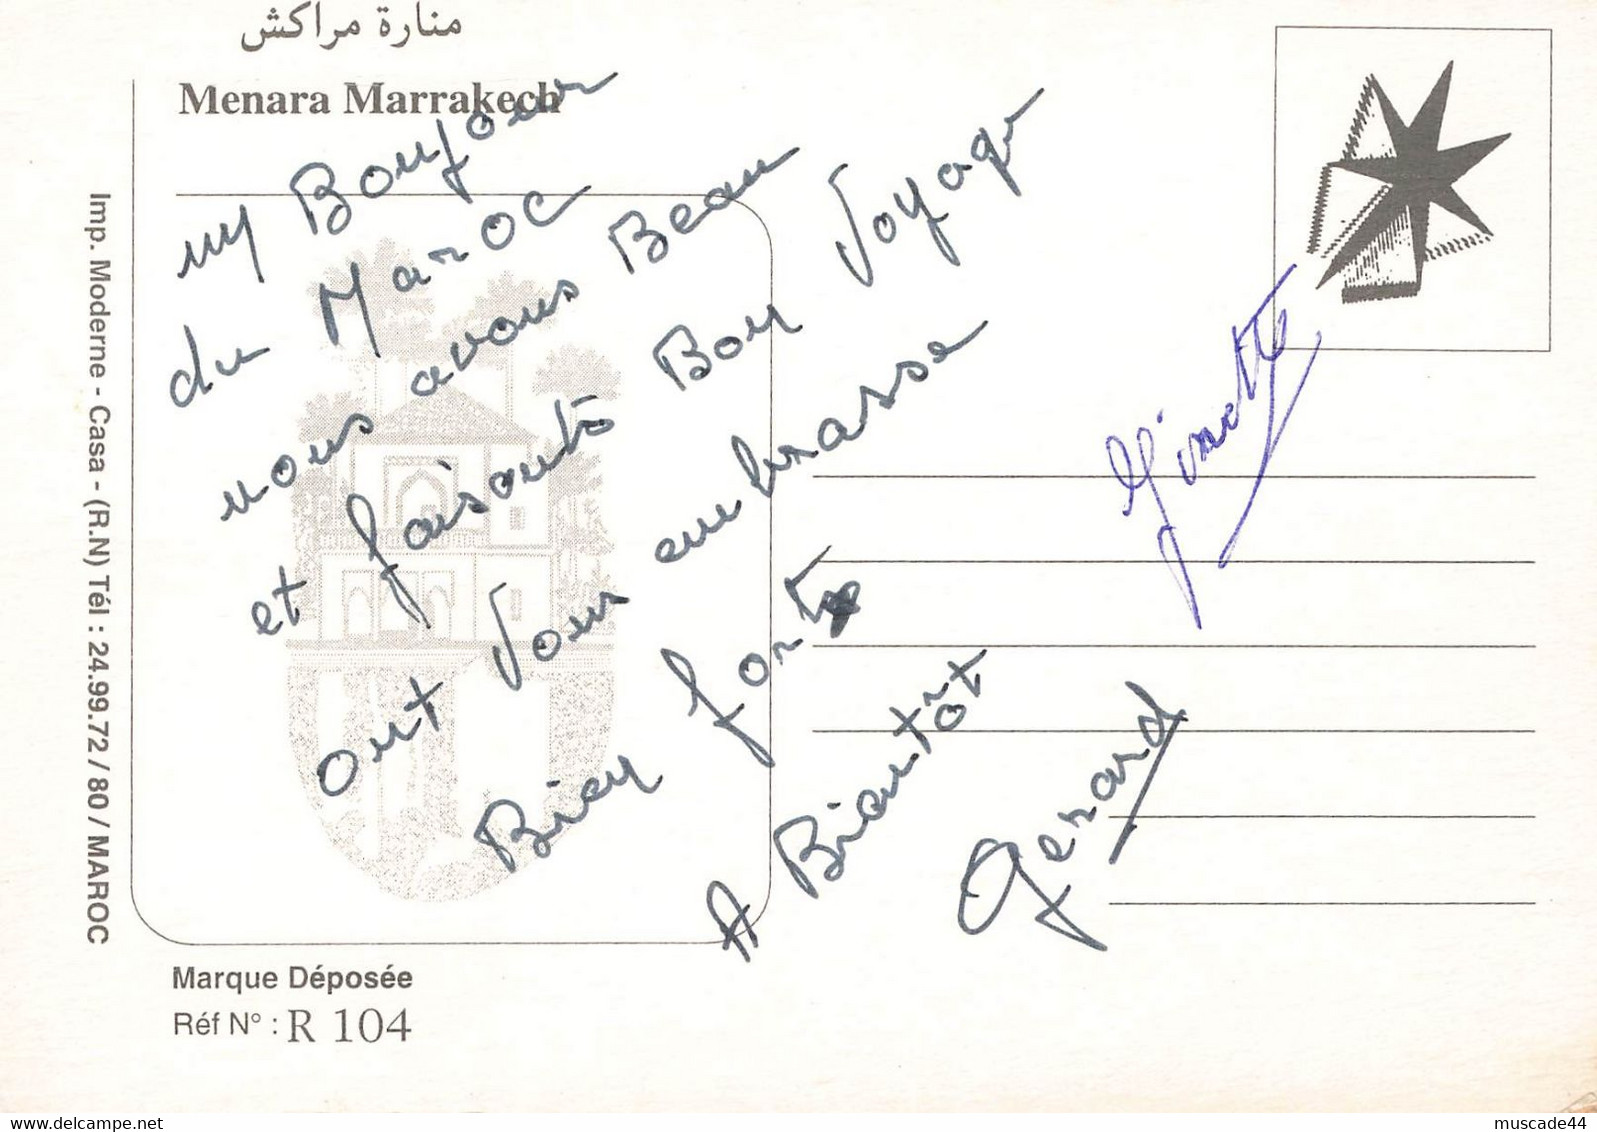 منارة مراكش
Menara Marrakech
un Bonjour
du Maroc
nous avons Beau
et faisonts Bon Voyage
ont Vous embrasse
Bien fort
A Biantôt
Gerard
Ginette
Imp. Moderne - Casa - (R.N) Tél : 24.99.72 / 80 / MAROC
Marque Déposée
Réf N° : R 104
muscade44